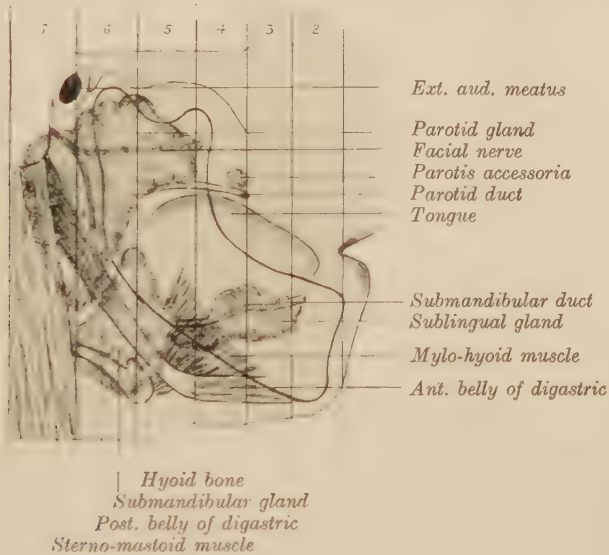 7 6 5 4 3 2
Ext. aud. meatus
Parotid gland
Facial nerve
Parotis accessoria
Parotid duct
Tongue
Submandibular duct
Sublingual gland
Mylo-hyoid muscle
Ant. belly of digastric
Hyoid bone
Submandibular gland
Post. belly of digastric
Sterno-mastoid muscle